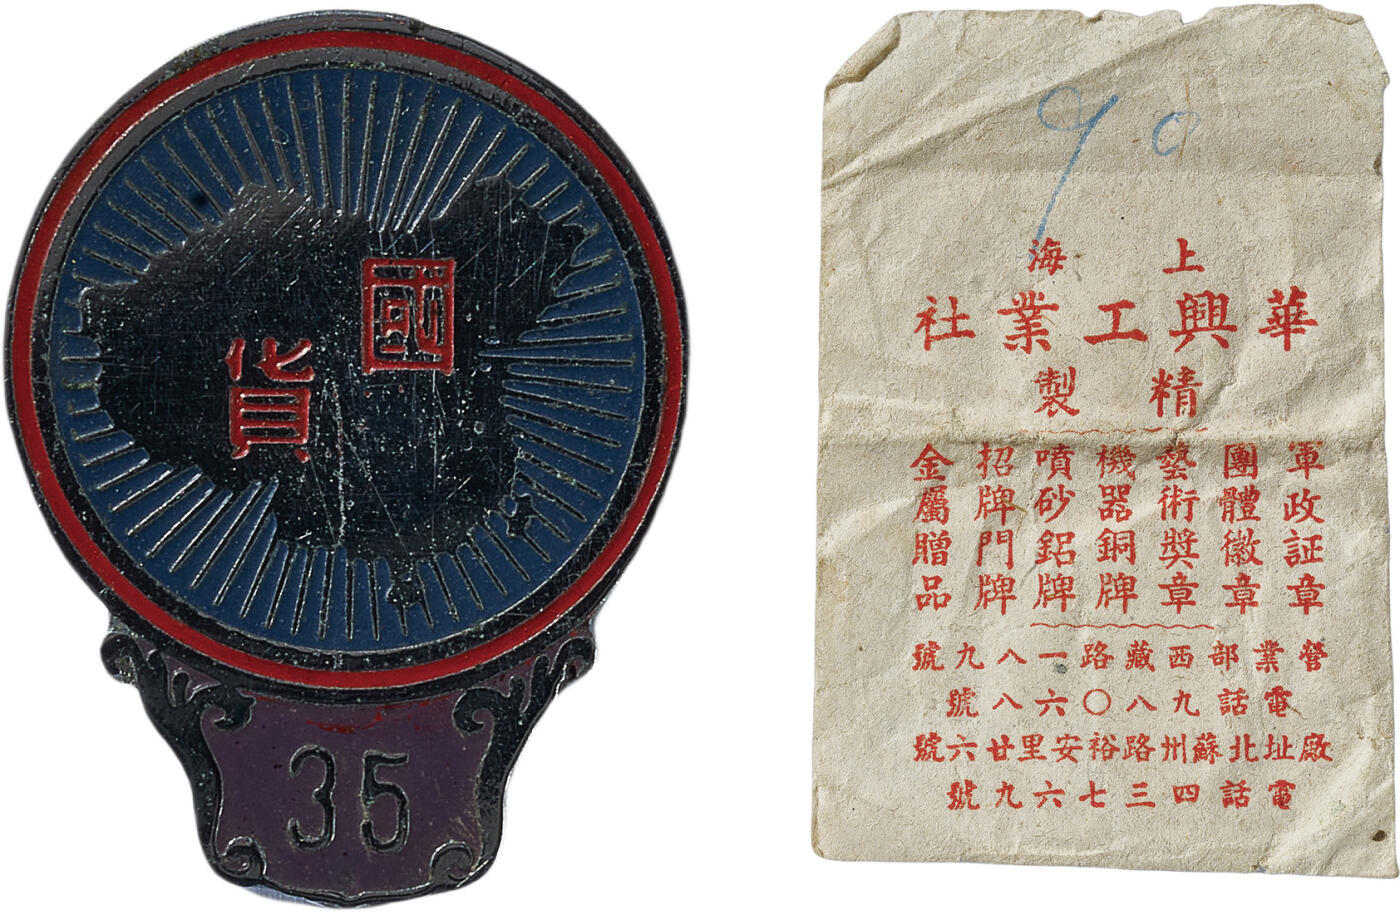 國貨
35
90
上海
華興工業社
精製
軍政証章
團體徽章
藝術獎章
機器銅牌
噴砂鋁牌
招牌門牌
金屬贈品
營業部西藏路一八九號
電話九八〇六八號
廠址北蘇州路裕安里廿六號
電話四三七六九號